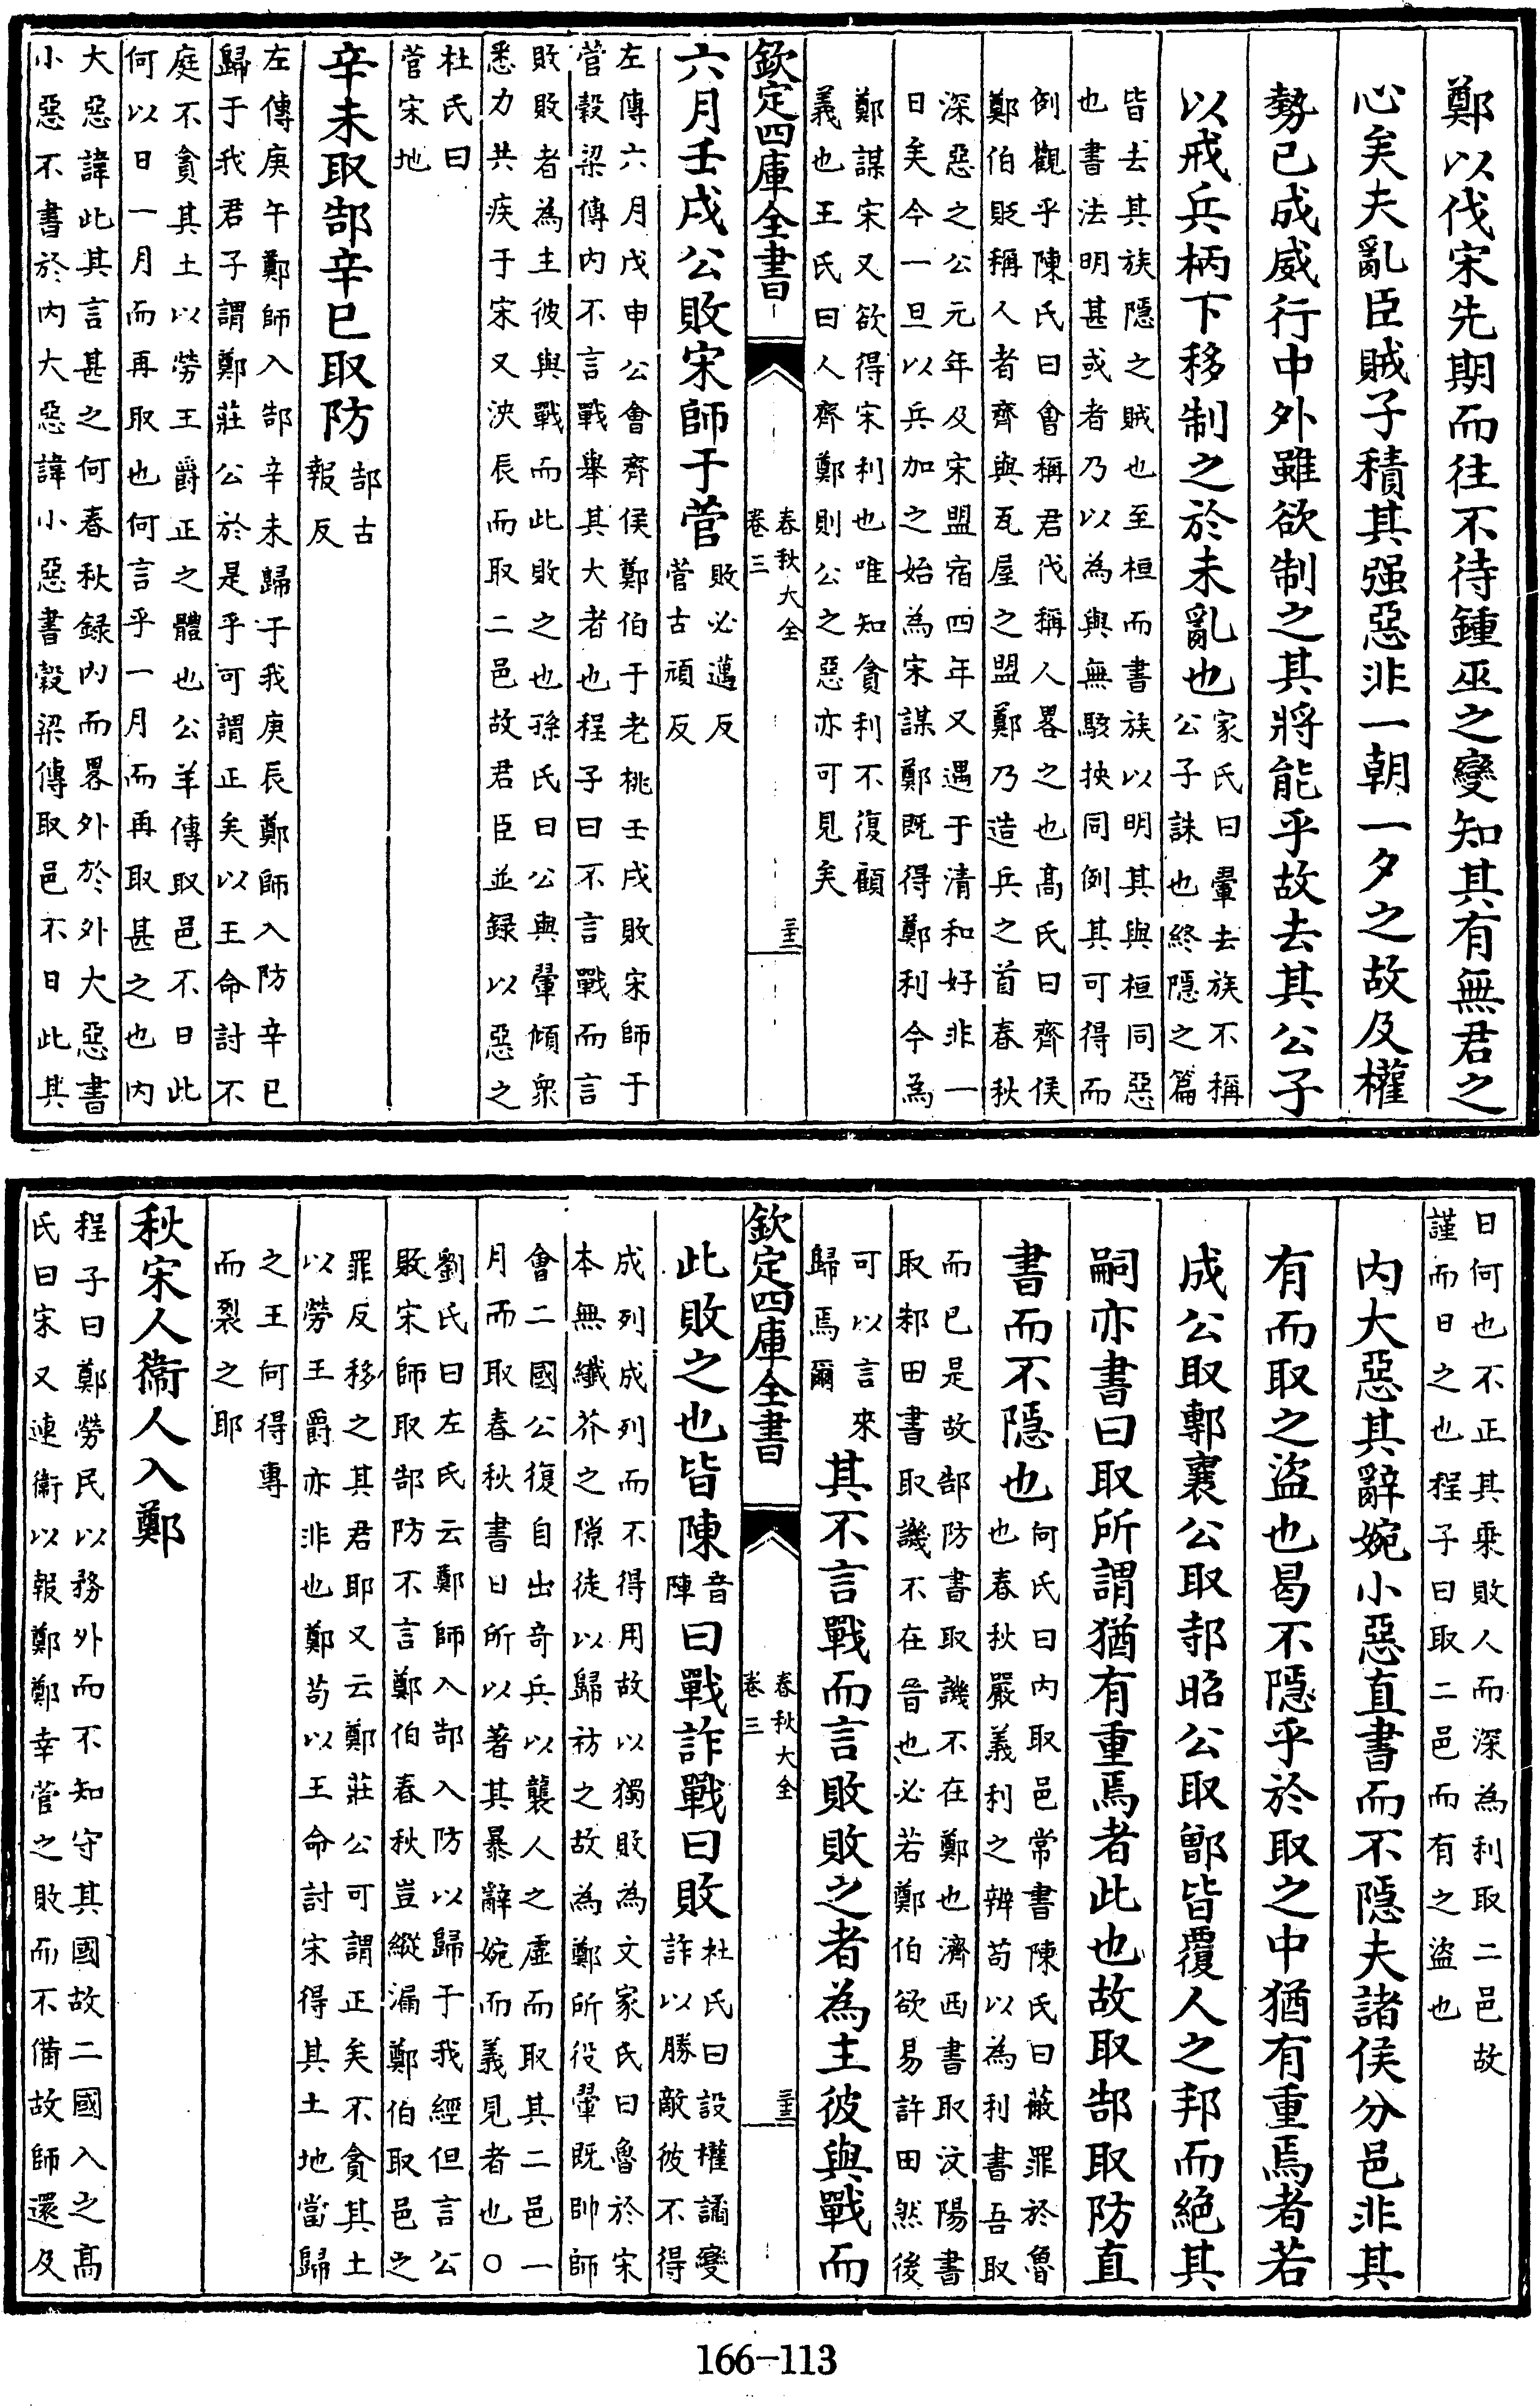 鄭以伐宋先期而往不待鍾巫之變知其有無君之
心矣夫亂臣賊子積其强惡非一朝一夕之故及權
勢已成威行中外雖欲制之其將能乎故去其公子
以戒兵柄下移制之於未亂也
家氏曰翬去族不稱
公子誅也終隱之篇
皆去其族隱之賊也至桓而書族以明其與桓同惡
也書法明甚或者乃以為與無駭挾同例其可得而
例觀乎陳氏曰會稱君伐稱人畧之也髙氏曰齊侯
鄭伯貶稱人者齊與瓦屋之盟鄭乃造兵之首春秋
深惡之公元年及宋盟宿四年又遇于清和好非一
日矣今一旦以兵加之始為宋謀鄭既得鄭利今為
鄭謀宋又欲得宋利也唯知貪利不復顧
義也王氏曰人齊鄭則公之惡亦可見矣
欽定四庫全書
春秋大全
卷三
六月壬戌公敗宋師于菅
敗必邁反
菅古頑反
左傳六月戊申公會齊侯鄭伯于老桃壬戌敗宋師于
菅穀梁傳内不言戰舉其大者也程子曰不言戰而言
敗敗者為主彼與戰而此敗之也孫氏曰公與翬傾衆
悉力共疾于宋又浹辰而取二邑故君臣並録以惡之
杜氏曰
菅宋地
辛未取郜辛巳取防
郜古
報反
左傳庚午鄭師入郜辛未歸于我庚辰鄭師入防辛巳
歸于我君子謂鄭莊公於是乎可謂正矣以王命討不
庭不貪其土以勞王爵正之體也公羊傳取邑不日此
何以日一月而再取也何言乎一月而再取甚之也内
大惡諱此其言甚之何春秋録内而畧外於外大惡書
小惡不書於内大惡諱小惡書穀梁傳取邑不日此其
日何也不正其乘敗人而深為利取二邑故
謹而日之也程子曰取二邑而有之盜也
内大惡其辭婉小惡直書而不隱夫諸侯分邑非其
有而取之盜也曷不隱乎於取之中猶有重焉者若
成公取鄟襄公取邿昭公取鄫皆覆人之邦而絶其
嗣亦書曰取所謂猶有重焉者此也故取郜取防直
書而不隱也
何氏曰内取邑常書陳氏曰蔽罪於魯
也春秋嚴義利之辨苟以為利書吾取
而已是故郜防書取譏不在鄭也濟西書取汶陽書
取邾田書取譏不在晉也必若鄭伯欲易許田然後
可以言來
歸焉爾
其不言戰而言敗敗之者為主彼與戰而
欽定四庫全書
春秋大全
卷三
此敗之也皆陳
音
陣
曰戰詐戰曰敗
杜氏曰設權譎變
詐以勝敵彼不得
成列成列而不得用故以獨敗為文家氏曰魯於宋
本無纖芥之隙徒以歸祊之故為鄭所役翬既帥師
會二國公復自出竒兵以襲人之虚而取其二邑一
月而取春秋書日所以著其暴辭婉而義見者也○
劉氏曰左氏云鄭師入郜入防以歸于我經但言公
敗宋師取郜防不言鄭伯春秋豈縱漏鄭伯取邑之
罪反移之其君耶又云鄭莊公可謂正矣不貪其土
以勞王爵亦非也鄭苟以王命討宋得其土地當歸
之王何得專
而裂之耶
秋宋人衞人入鄭
程子曰鄭勞民以務外而不知守其國故二國入之髙
氏曰宋又連衞以報鄭鄭幸菅之敗而不備故師還及
166-113